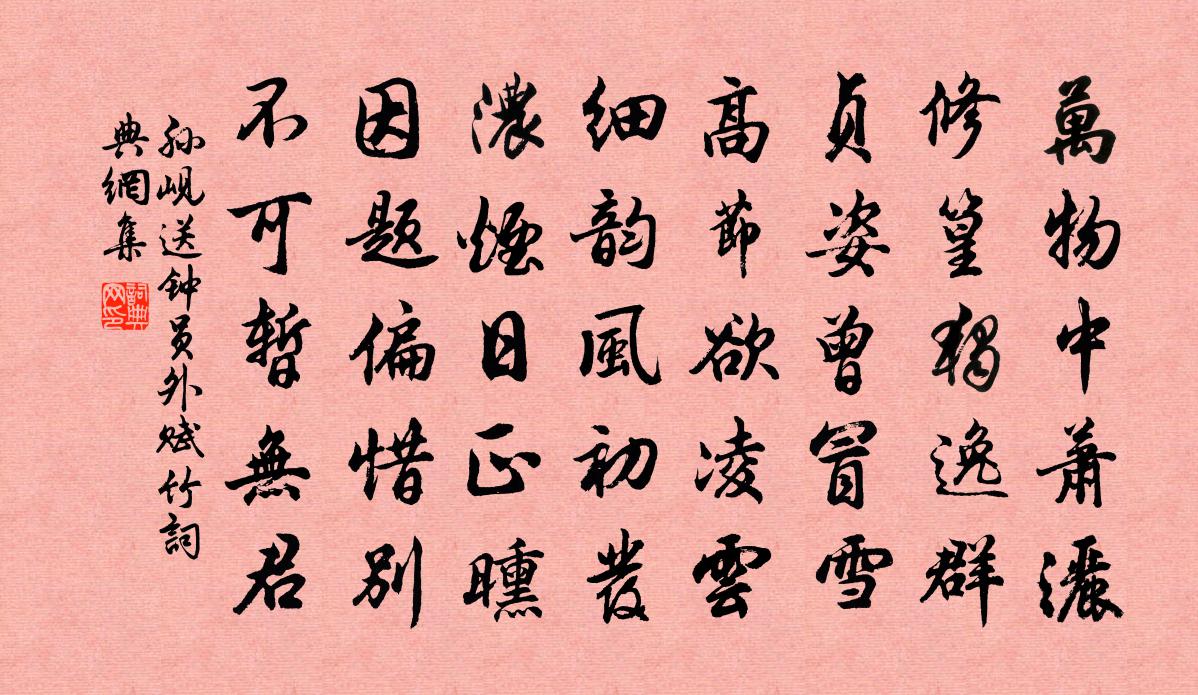 萬物中蕭灑
修篁獨逸群
貞姿曾冒雪
高節欲凌雲
細韵風初發
濃煙日正曛
因題偏惜別
不可暫無君
孙岘送钟员外赋竹詞
典網集
詞典網印